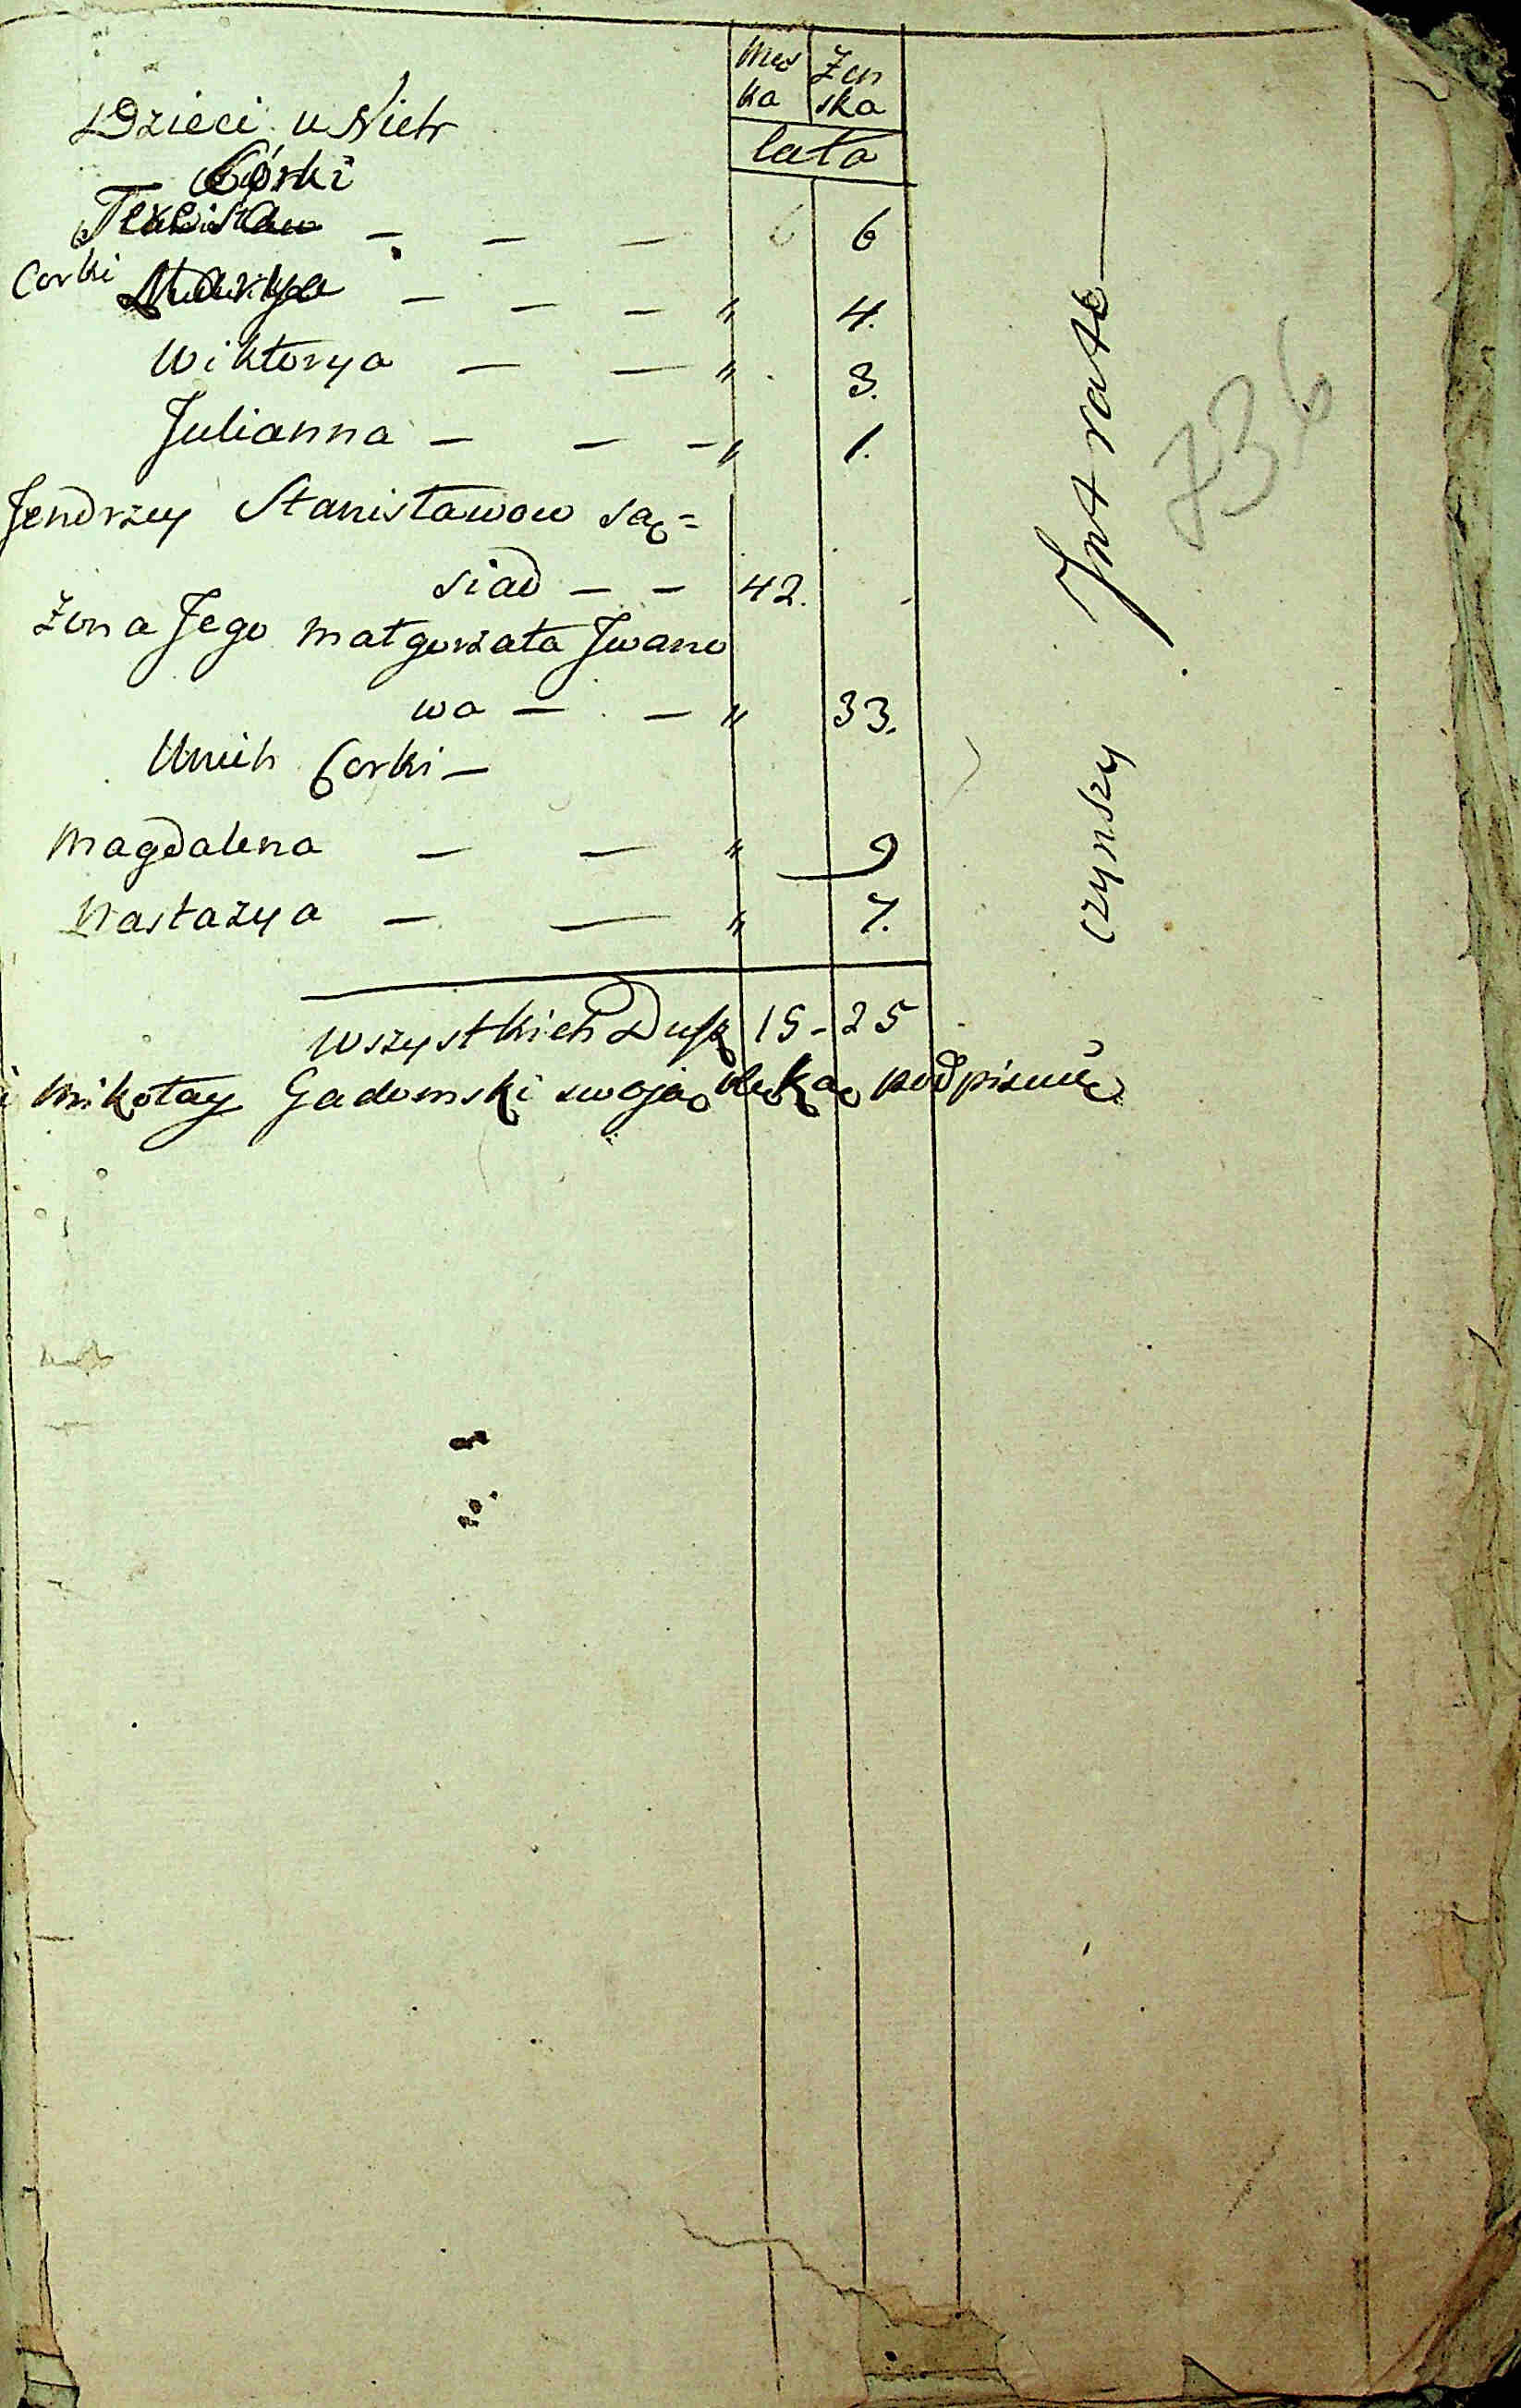 Męs Żen
ka ska
lata
Dzieci u Nich
Córki
— — — 6 6
Corki Marya — — — " 4.
Wiktorya — — " 3.
Julianna — — — " 1.
Jendrzey Stanisławow są=
siad — — 42.
Żona Jego Małgorzata Jwano
wa — — " 33.
Unich Corki —
Magdalena — — " 9
Nastazya — — " 7.
Wszystkich Dusz 15 - 25
i Mikołay Gadomski swoją ręką podpisuię
Jntrate
czynszy
736